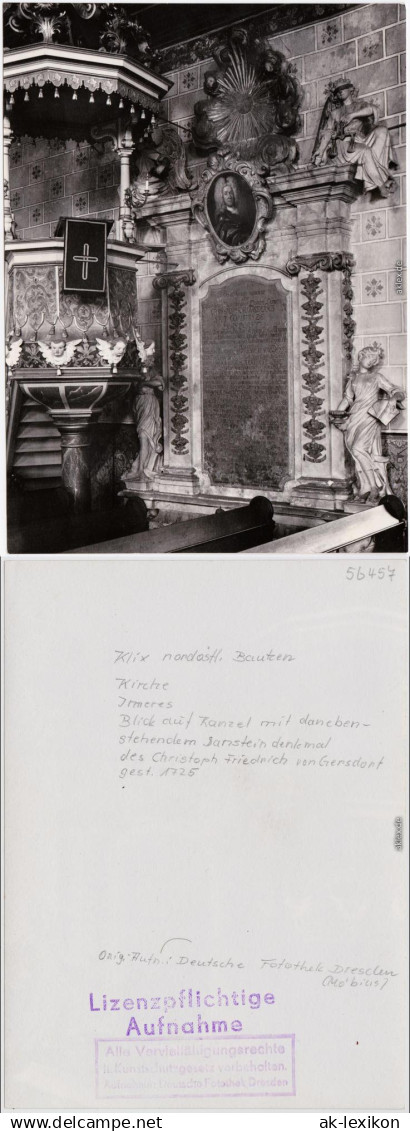 56457
Klix nordöstl. Bautzen
Kirche
Inneres
Blick auf Kanzel mit daneben-
stehendem Sansteindenkmal
des Christoph Friedrich von Gersdorf
gest. 1725
Orig. Aufn.: Deutsche Fotothek Dresden
(Möbius)
Lizenzpflichtige
Aufnahme
Alle Vervielfältigungsrechte
lt. Kunstschutzgesetz vorbehalten.
Aufnahme: Deutsche Fotothek Dresden
aklex.de
aklex.de
www.delcampe.net
ak-lexikon